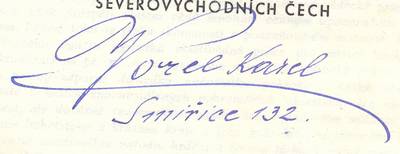 SEVEROVÝCHODNÍCH ČECH
Vorel Karel
Smiřice 132.